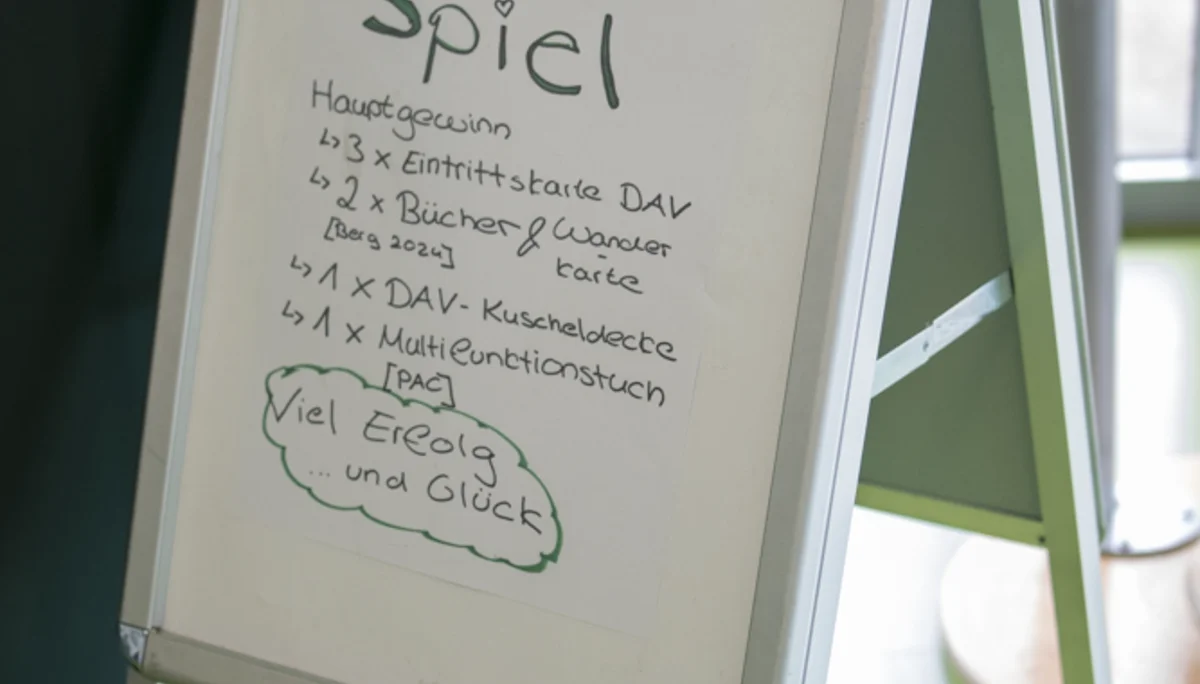 Spiel
Hauptgewinn
↳ 3 x Eintrittskarte DAV
↳ 2 x Bücher & Wander-
[Berg 2024] karte
↳ 1 x DAV-Kuscheldecke
↳ 1 x Multifunktionstuch
[PAC]
Viel Erfolg
... und Glück